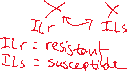 X X
ILr ILs
ILr = resistant
ILs = susceptible